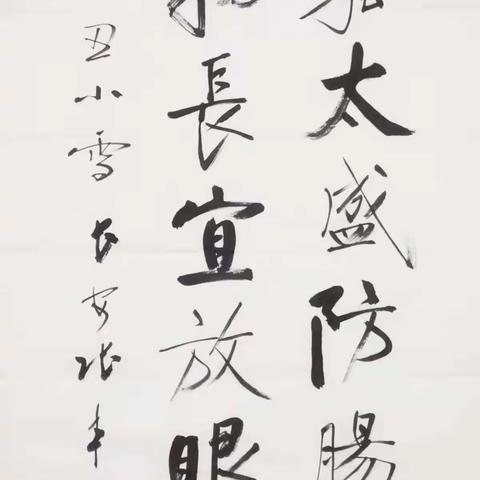 太盛防腸
長宜放眼
丑小雪长安张